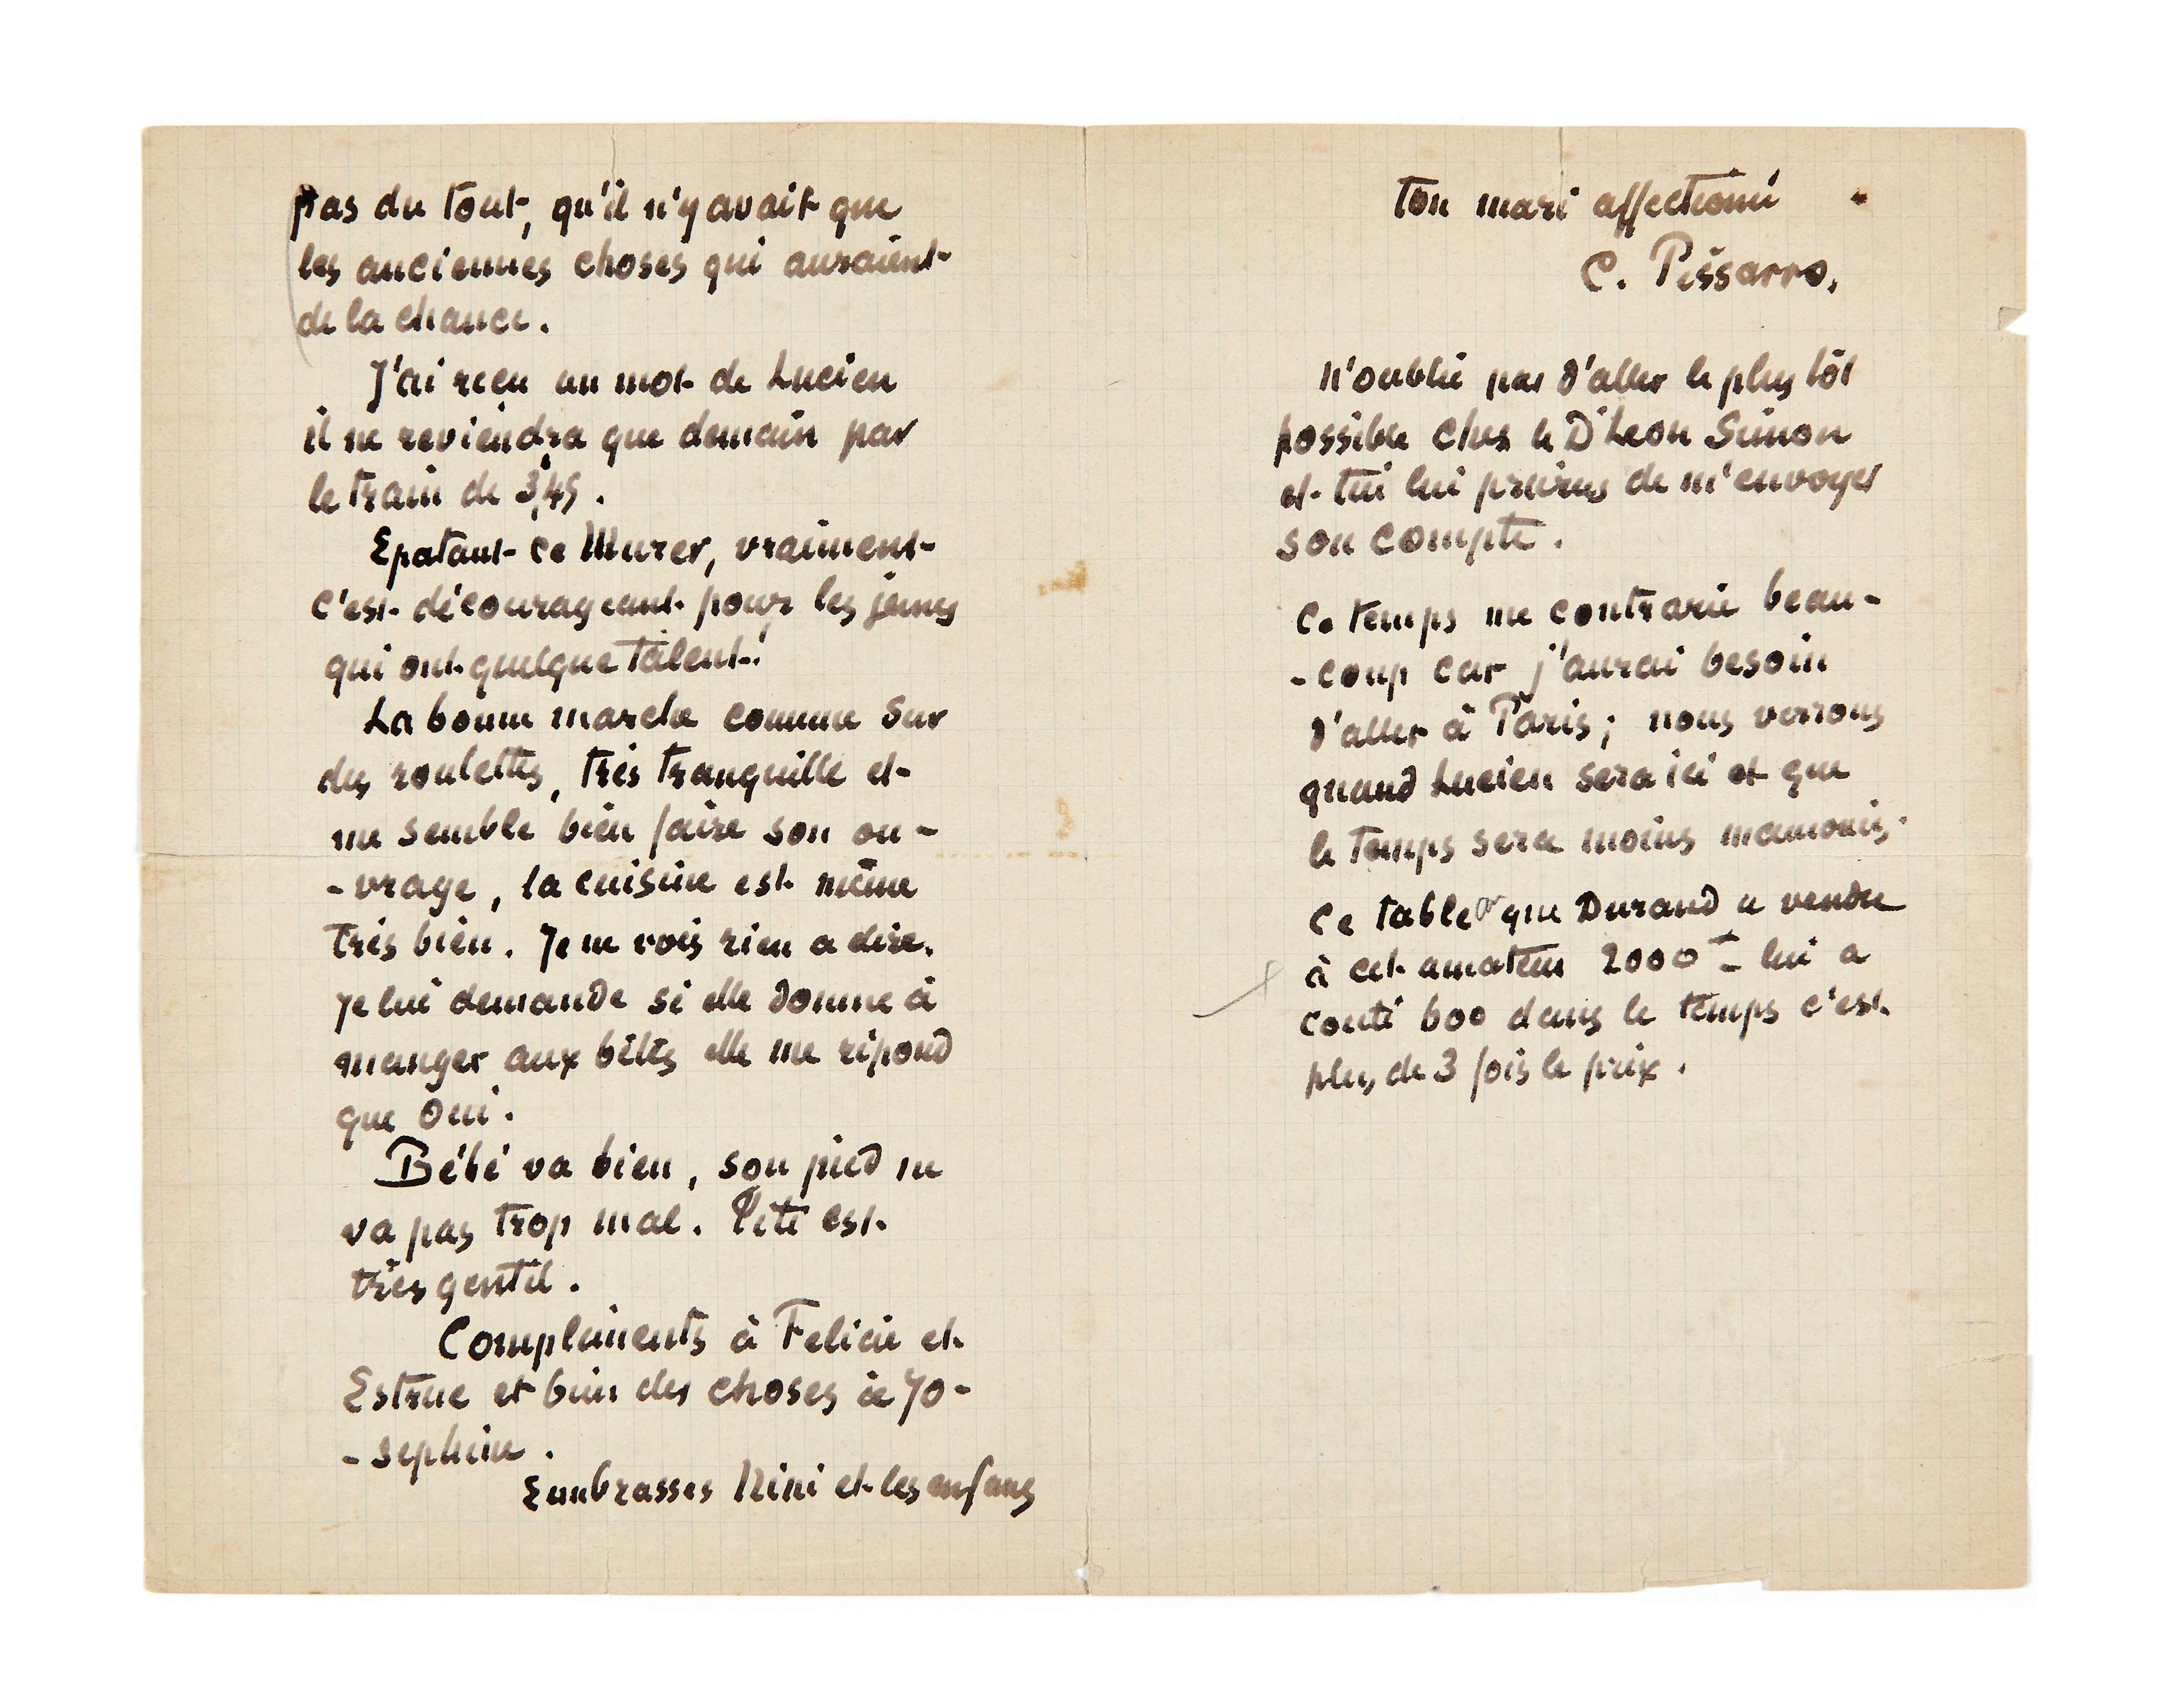 pas du tout, qu'il n'y avait que
les anciennes choses qui auraient
de la chance.
J'ai reçu un mot de Lucien
il ne reviendra que demain par
le train de 3,45.
Epatant ce Murer, vraiment
c'est décourageant pour les jeunes
qui ont quelque talent!
La bonne marche comme sur
des roulettes, très tranquille et
me semble bien faire son ou-
-vrage, la cuisine est même
très bien. Je ne vois rien a dire.
Je lui demande si elle donne à
manger aux bêtes elle me répond
que oui.
Bébé va bien, son pied ne
va pas trop mal. Titi est
très gentil.
Compliments à Felicie et
Estrue et bien des choses à Jo-
-sephine.
Embrasses Nini et les enfans
Ton mari affectionné
C. Pissarro.
N'oublie pas d'aller le plus tôt
possible chez le Dr Leon Simon
et tu lui prieras de m'envoyer
son compte.
Ce temps me contrarie beau-
-coup car j'aurai besoin
d'aller à Paris; nous verrons
quand Lucien sera ici et que
le temps sera moins
Ce tableau que Durand a vendu
à cet amateur 2000 f lui a
couté 600 dans le temps c'est
plus de 3 fois le prix.